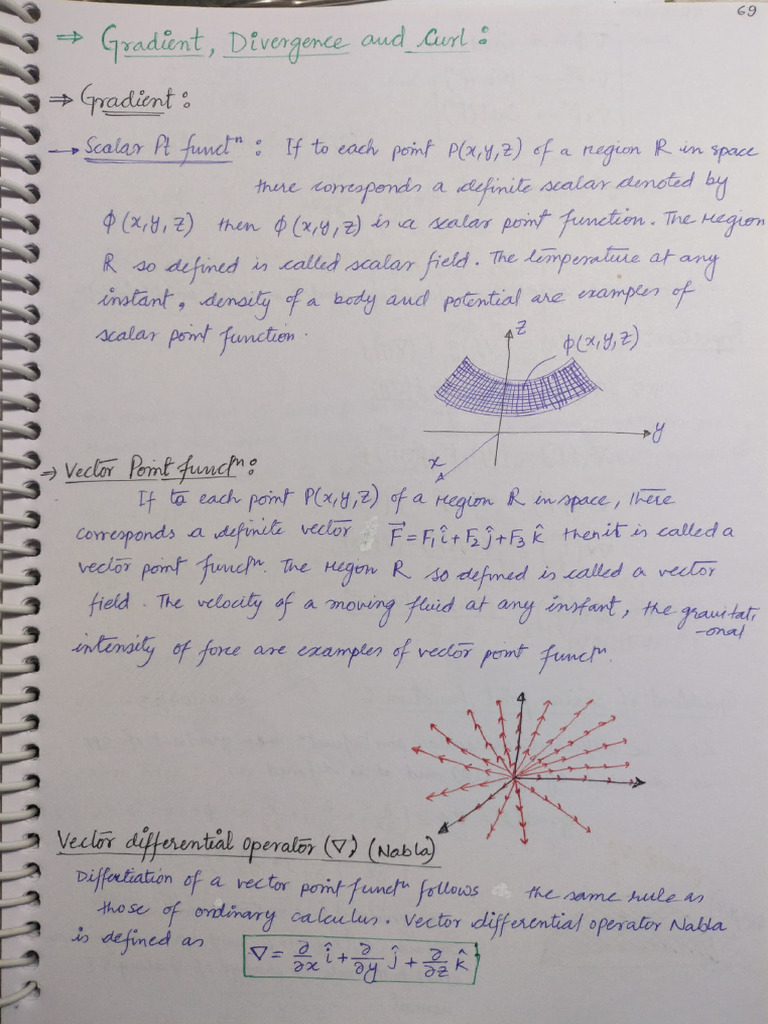 69
⇒ Gradient, Divergence and Curl:
⇒ Gradient:
→ Scalar Pt functⁿ: If to each point P(x,y,z) of a region R in space
there corresponds a definite scalar denoted by
ϕ(x,y,z) then ϕ(x,y,z) is a scalar point function. The region
R so defined is called scalar field. The temperature at any
instant, density of a body and potential are examples of
scalar point function.
z
ϕ(x,y,z)
y
x
⇒ Vector Point functⁿ:
If to each point P(x,y,z) of a region R in space, there
corresponds a definite vector F⃗ = F₁î + F₂ĵ + F₃k̂ then it is called a
vector point functⁿ. The region R so defined is called a vector
field. The velocity of a moving fluid at any instant, the gravitati
-onal
intensity of force are examples of vector point functⁿ.
Vector differential operator (∇) (Nabla)
Differtiation of a vector point functⁿ follows the same rule as
those of ordinary calculus. Vector differential operator Nabla
is defined as ∇ = ∂/∂x î + ∂/∂y ĵ + ∂/∂z k̂